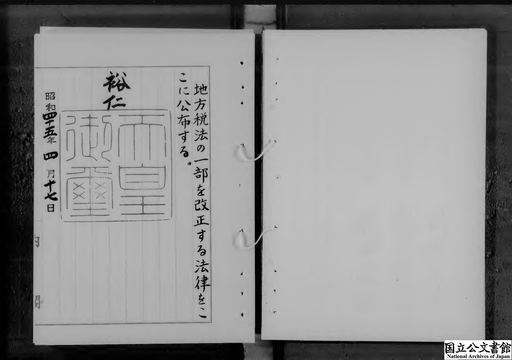 地方税法の一部を改正する法律をこ
こに公布する。
裕仁
天皇
御璽
昭和四十五年四月十七日
国立公文書館
National Archives of Japan